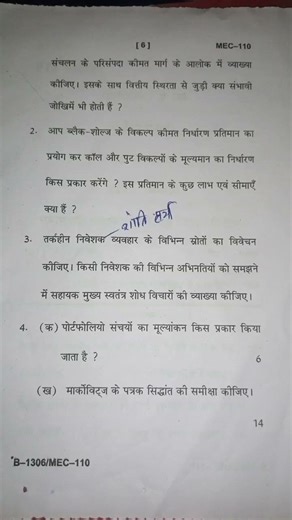 [ 6 ] MEC–110
संचलन के परिसंपदा कीमत मार्ग के आलोक में व्याख्या
कीजिए। इसके साथ वित्तीय स्थिरता से जुड़ी क्या संभावी
जोखिमें भी होती हैं ?
2. आप ब्लैक-शोल्ज के विकल्प कीमत निर्धारण प्रतिमान का
प्रयोग कर कॉल और पुट विकल्पों के मूल्यमान का निर्धारण
किस प्रकार करेंगे ? इस प्रतिमान के कुछ लाभ एवं सीमाएँ
क्या हैं ?
3. तर्कहीन निवेशक व्यवहार के विभिन्न स्रोतों का विवेचन
कीजिए। किसी निवेशक को विभिन्न अभिनतियों को समझने
में सहायक मुख्य स्वतंत्र शोध विचारों की व्याख्या कीजिए।
4. (क) पोर्टफोलियो संचयों का मूल्यांकन किस प्रकार किया
जाता है ? 6
(ख) मार्कोविट्ज के पत्रक सिद्धांत की समीक्षा कीजिए।
14
B–1306/MEC–110